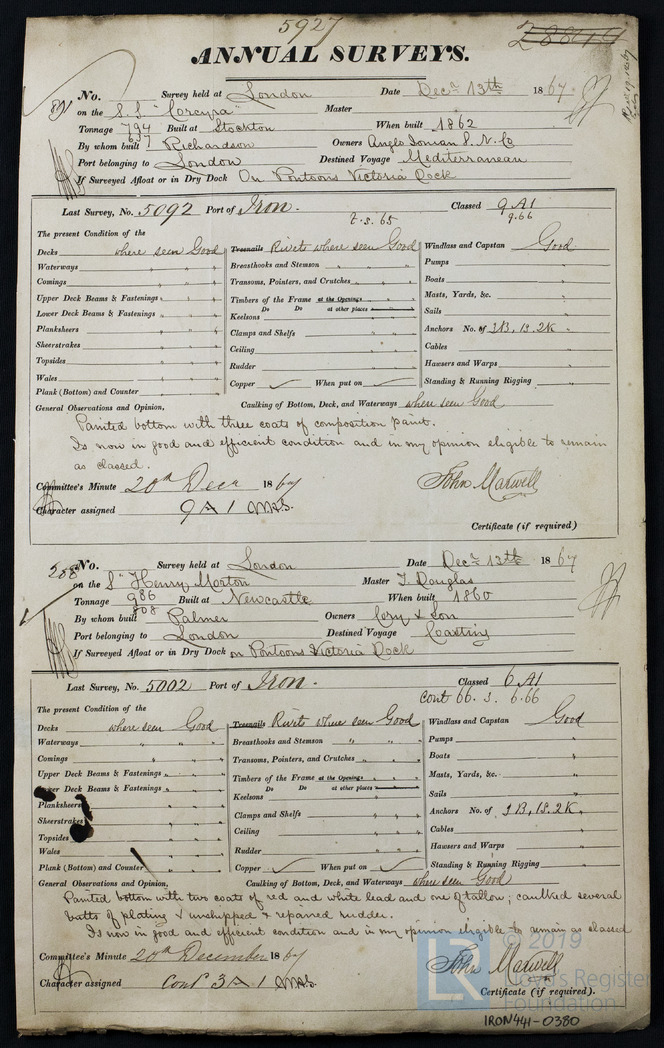 5927
28819
ANNUAL SURVEYS.
No. Survey held at London Date Decr 13th 1867
on the S.S. "Corcyra" Master
Tonnage 794 Built at Stockton When built 1862
637
By whom built Richardson Owners Anglo Ionian S. N. Co
Port belonging to London Destined Voyage Mediterranean
If Surveyed Afloat or in Dry Dock On Pontoons Victoria Dock
Last Survey, No. 5092 Port of Iron. Classed 9 A1
7.s. 65 9.66
The present Condition of the
Decks where seen Good Treenails Rivets where seen Good Windlass and Capstan Good
Waterways " " Breasthooks and Stemson " " Pumps "
Comings " " Transoms, Pointers, and Crutches " " Boats "
Upper Deck Beams & Fastenings " " Timbers of the Frame at the Openings " " Masts, Yards, &c. "
Do Do at other places
Lower Deck Beams & Fastenings " " Keelsons " " Sails "
Planksheers " " Clamps and Shelfs " " Anchors No. of 3B, 1S. 2K "
Sheerstrakes " " Ceiling " " Cables "
Topsides " " Rudder " " Hawsers and Warps "
Wales " " Copper When put on Standing & Running Rigging "
Plank (Bottom) and Counter " "
General Observations and Opinion, Caulking of Bottom, Deck, and Waterways where seen Good
Painted bottom with three coats of composition paint.
Is now in good and efficient condition and in my opinion eligible to remain
as classed.
Committee's Minute 20th Decr 1867 John Maxwell
Character assigned 9 A 1
Certificate (if required)
288 No. Survey held at London Date Decr 13th 1867
on the S" Henry Morton Master T. Douglas
Tonnage 986 Built at Newcastle When built 1860
808
By whom built Palmer Owners Cory & Son
Port belonging to London Destined Voyage Coasting
If Surveyed Afloat or in Dry Dock on Pontoons Victoria Dock
Last Survey, No. 5002 Port of Iron. Classed 6 A1
Cont 66. s. 6.66
The present Condition of the
Decks where seen Good Treenails Rivets where seen Good Windlass and Capstan Good
Waterways " " Breasthooks and Stemson " " Pumps "
Comings " " Transoms, Pointers, and Crutches " " Boats "
Upper Deck Beams & Fastenings " " Timbers of the Frame at the Openings " " Masts, Yards, &c. "
Do Do at other places
Lower Deck Beams & Fastenings " " Keelsons " " Sails "
Planksheers " " Clamps and Shelfs " " Anchors No. of 3B, 1S. 2K. "
Sheerstrakes " " Ceiling " " Cables "
Topsides " " Rudder " " Hawsers and Warps "
Wales " " Copper When put on Standing & Running Rigging "
Plank (Bottom) and Counter " "
General Observations and Opinion, Caulking of Bottom, Deck, and Waterways where seen Good
Painted bottom with two coats of red and white lead and one of tallow; caulked several
butts of plating & unshipped & repaired rudder.
Is now in good and efficient condition and in my opinion eligible to remain as classed
Committee's Minute 20th December 1867 John Maxwell
Character assigned Cont 3 A 1
Certificate (if required).
LR © 2019
Lloyd's Register
Foundation
IRON441-0380